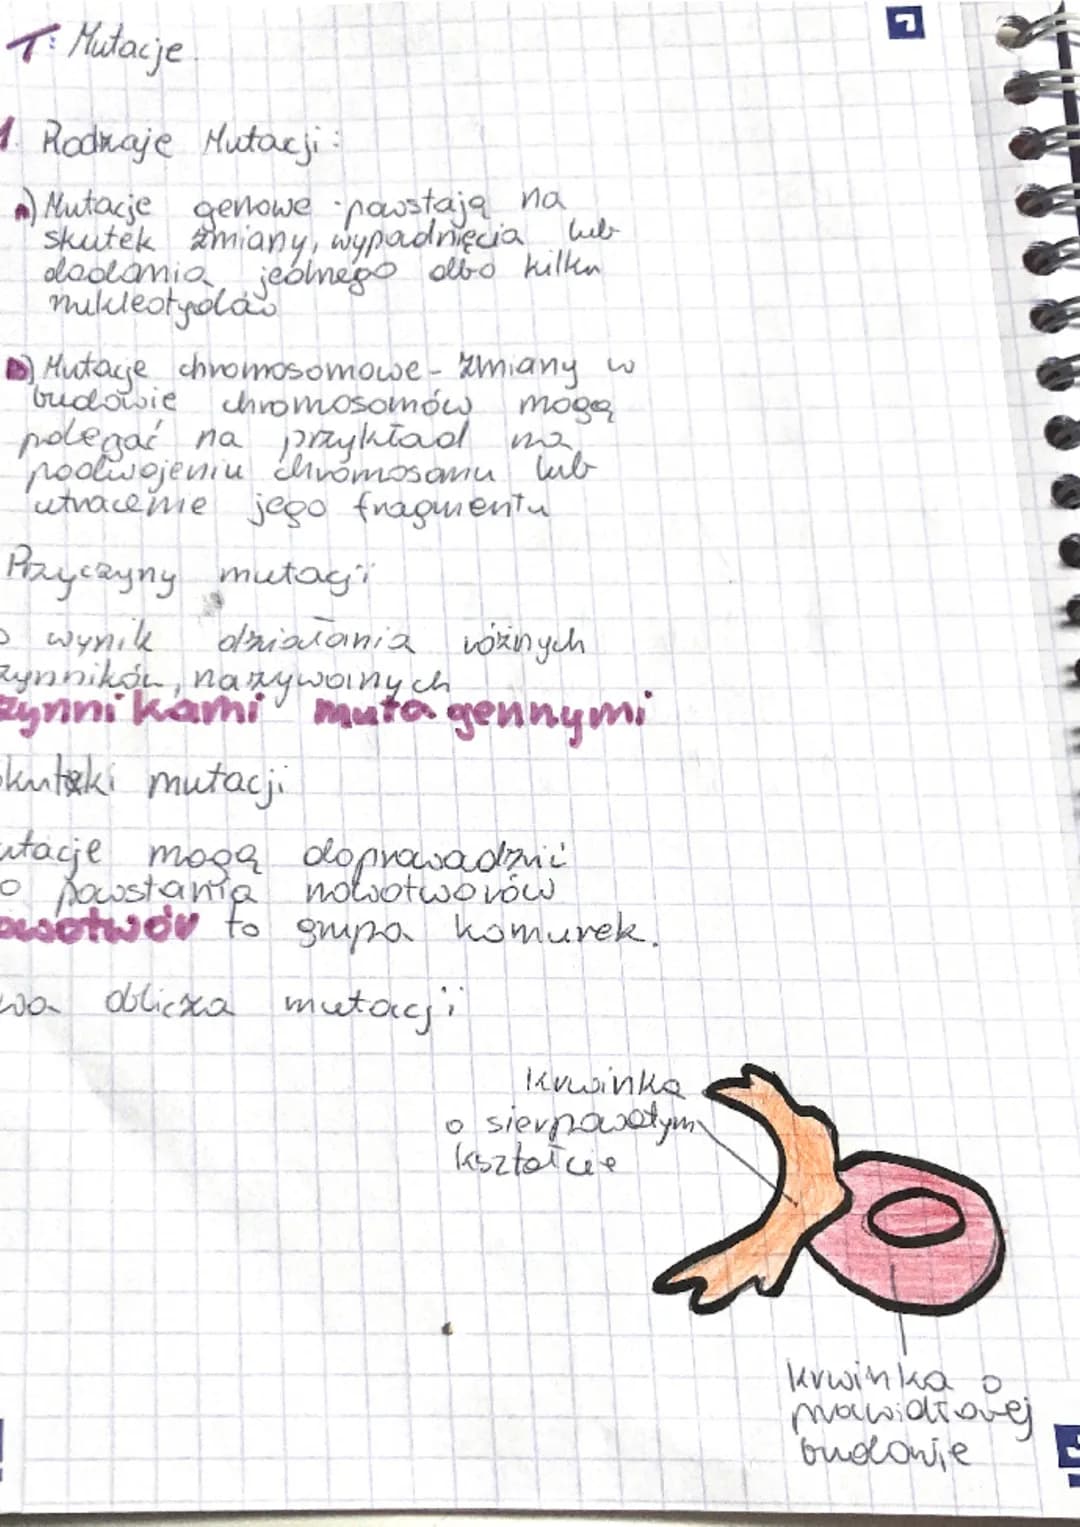 T: Mutacje.
1. Rodzaje Mutacji:
A) Mutacje genowe - powstają na
skutek zmiany, wypadnięcia lub
dodania jednego albo kilku
nukleotydów
B) Mutacje chromosomowe - zmiany w
budowie chromosomów mogą
polegać na przykład na
podwojeniu chromosomu lub
utracenie jego fragmentu
Przyczyny mutacji
o wynik działania różnych
zynników, nazywanych
zynnikami mutagennymi
kutki mutacji
utacje mogą doprowadzić
o powstania nowotworów
owotwór to grupa komurek.
wa oblicza mutacji
Krwinka
o sierpowatym
kształcie
krwinka o
prawidłowej
budowie